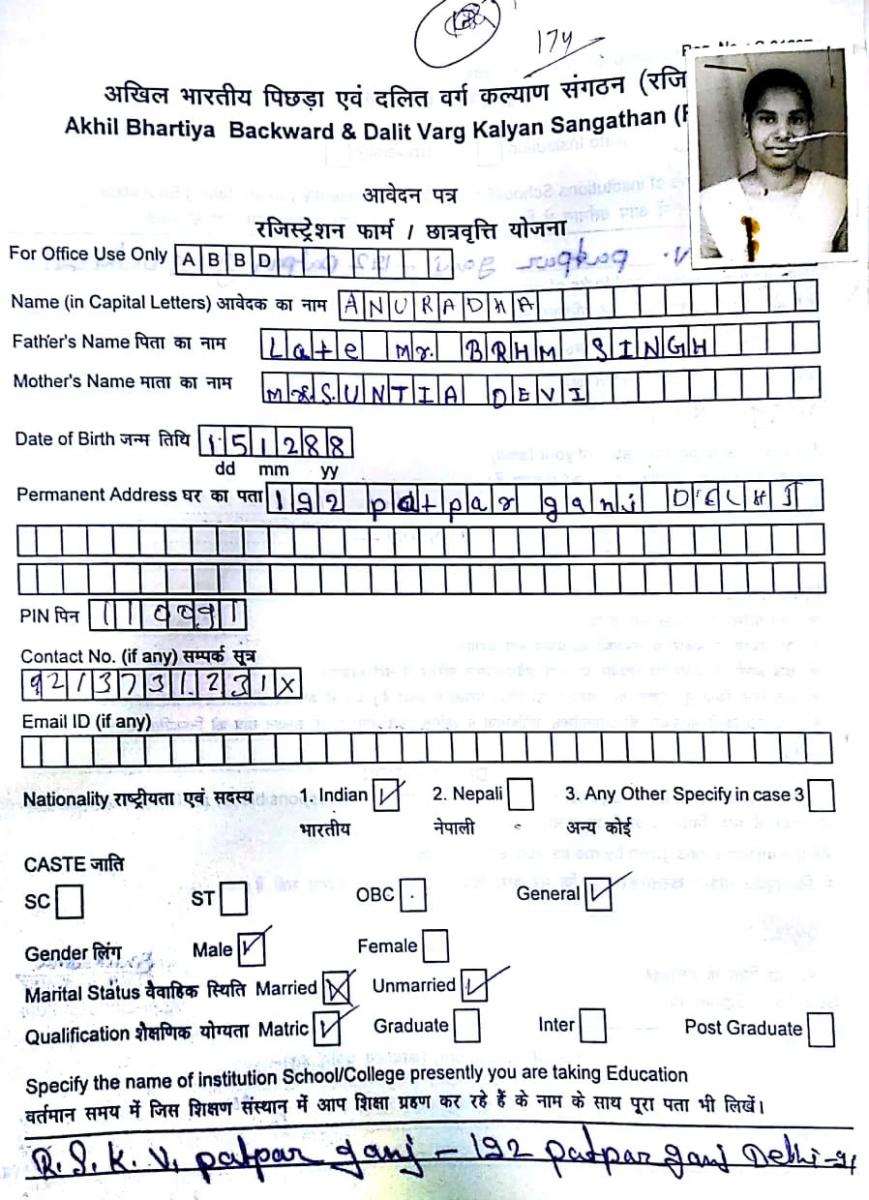 174
अखिल भारतीय पिछड़ा एवं दलित वर्ग कल्याण संगठन (रजि
Akhil Bhartiya Backward & Dalit Varg Kalyan Sangathan (
आवेदन पत्र
रजिस्ट्रेशन फार्म / छात्रवृत्ति योजना
For Office Use Only A B B D
Name (in Capital Letters) आवेदक का नाम ANURADHA
Father's Name पिता का नाम Late Mr. BRHM SINGH
Mother's Name माता का नाम SUNTIA DEVI
Date of Birth जन्म तिथि 151288
dd mm yy
Permanent Address घर का पता 192 patpar ganj DELHI
PIN पिन 110091
Contact No. (if any) सम्पर्क सूत्र
921373123 X
Email ID (if any)
Nationality राष्ट्रीयता एवं सदस्य 1. Indian 2. Nepali 3. Any Other Specify in case 3
भारतीय नेपाली अन्य कोई
CASTE जाति
SC ST OBC General
Gender लिंग Male Female
Marital Status वैवाहिक स्थिति Married Unmarried
Qualification शैक्षणिक योग्यता Matric Graduate Inter Post Graduate
Specify the name of institution School/College presently you are taking Education
वर्तमान समय में जिस शिक्षण संस्थान में आप शिक्षा ग्रहण कर रहे हैं के नाम के साथ पूरा पता भी लिखें।
R.S.K.V. patpar ganj - 192 patpar ganj Delhi-91